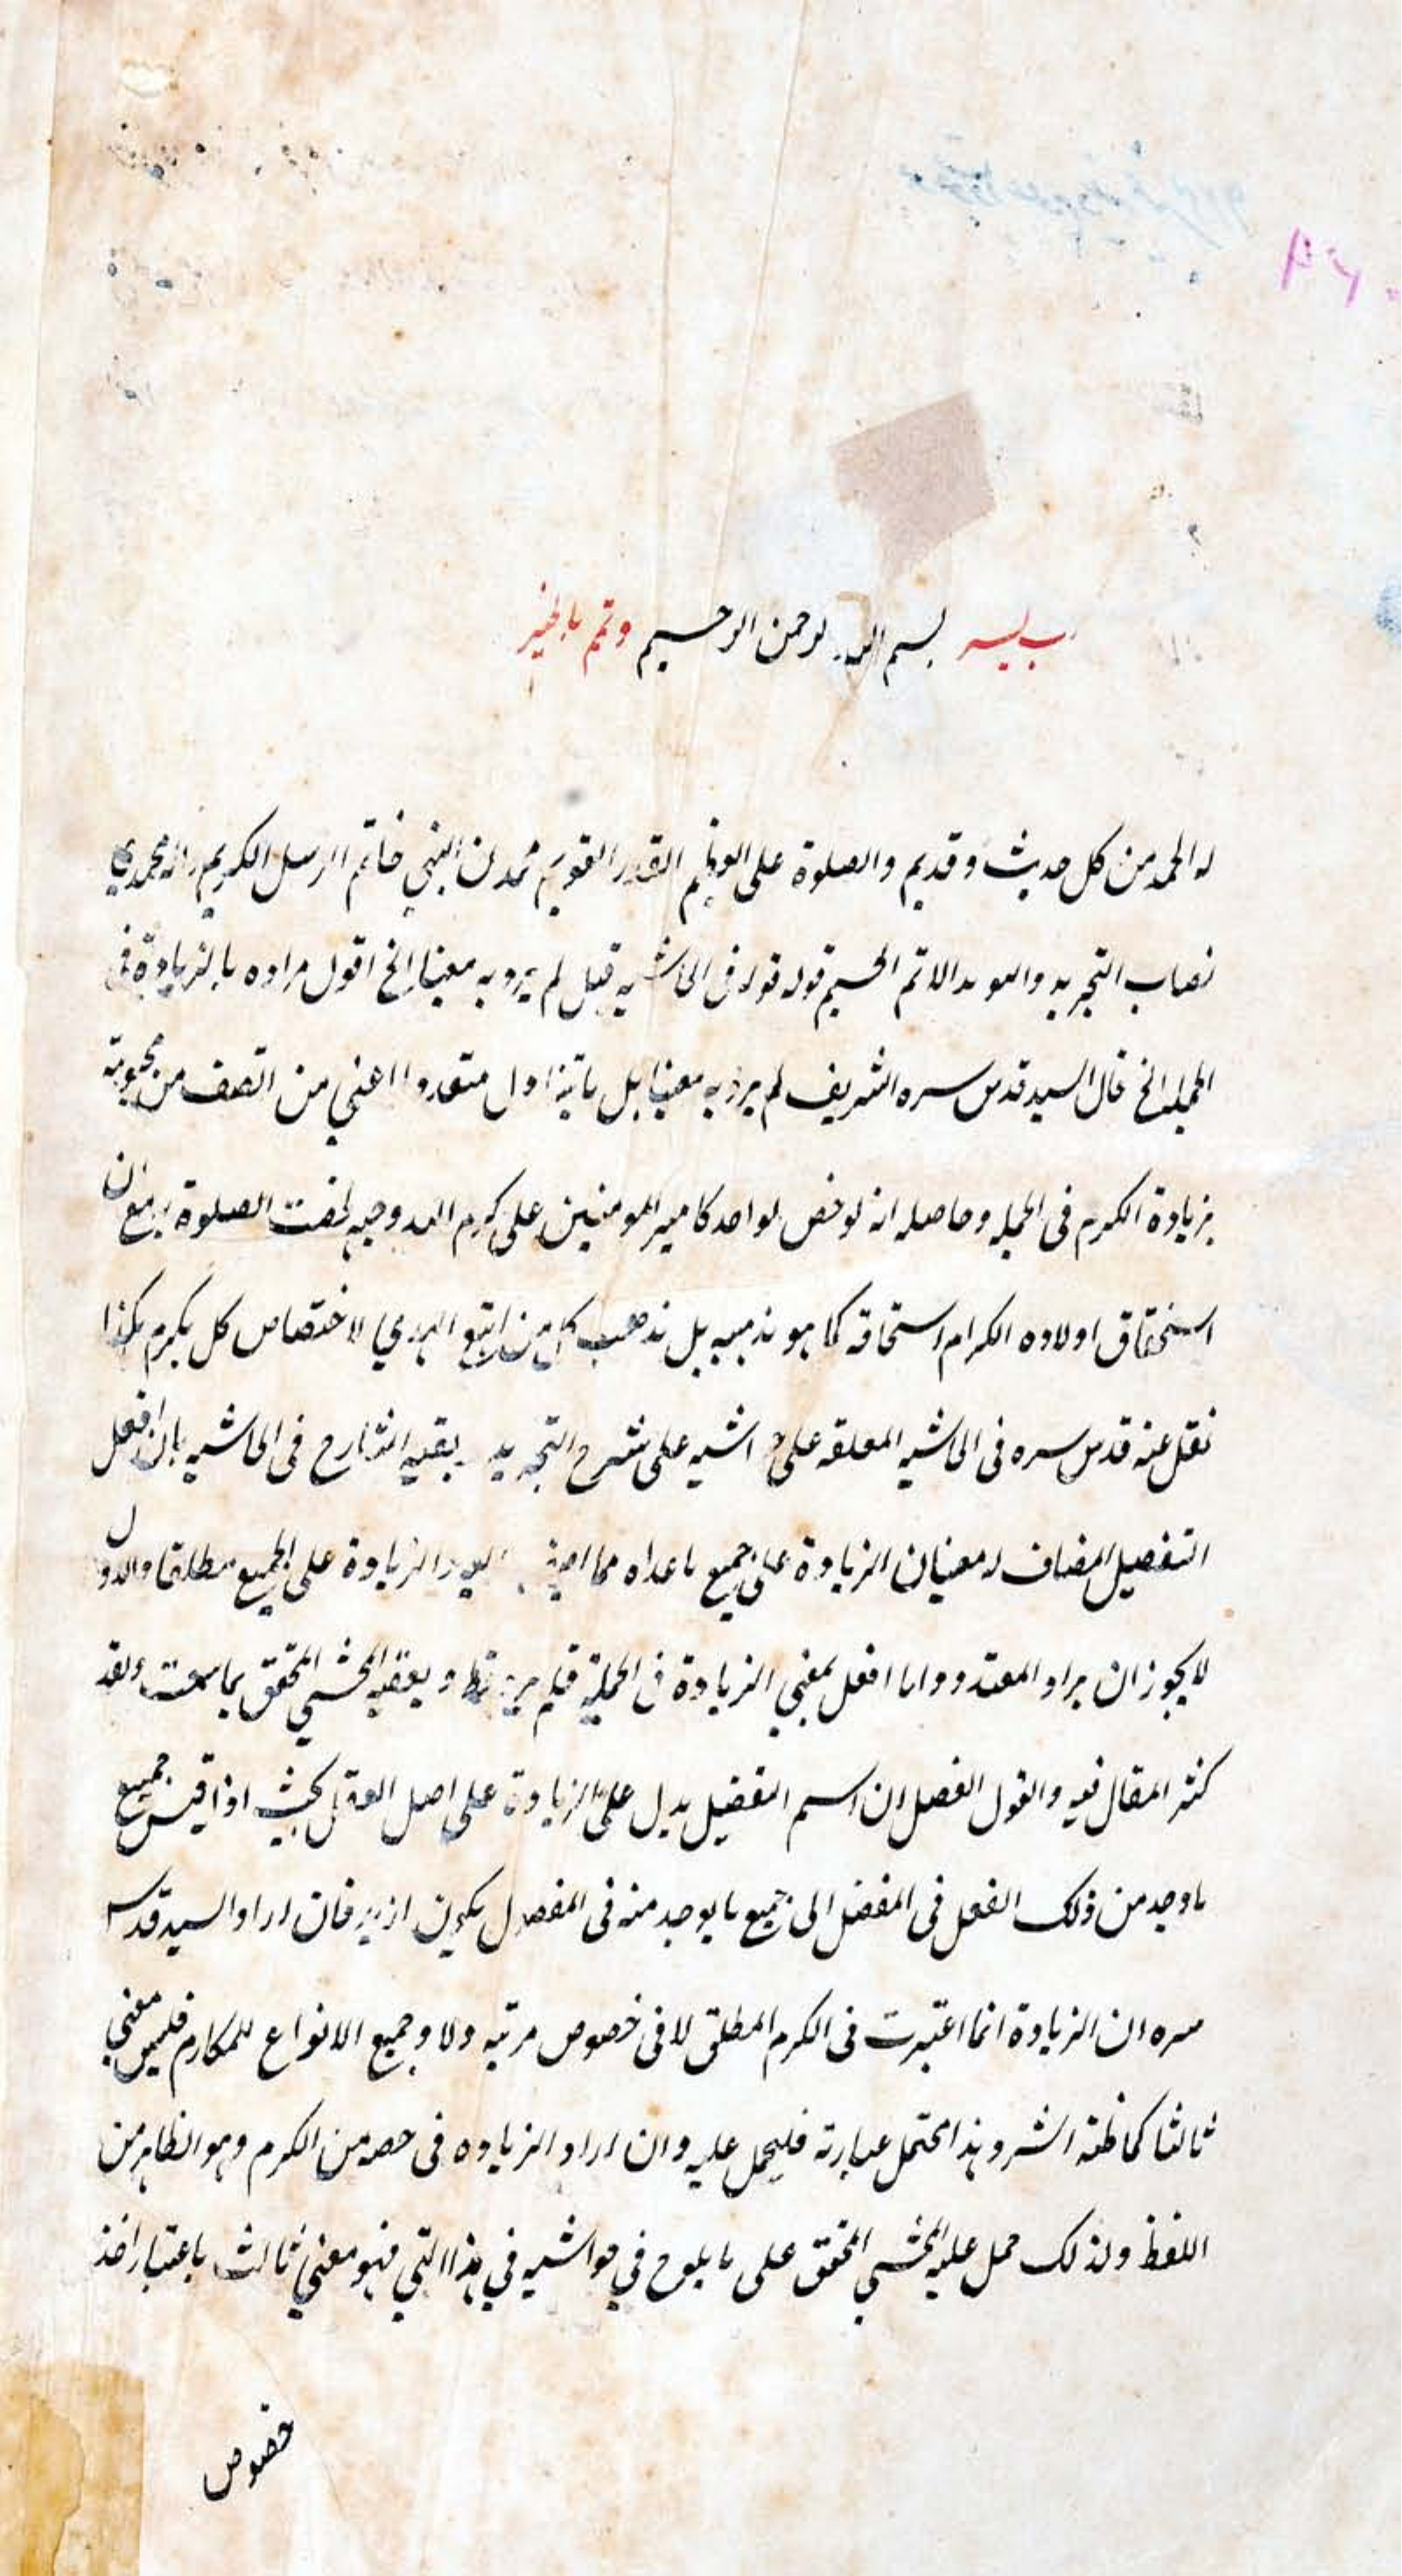 رب يسر بسم الله الرحمن الرحيم وتمم بالخير
له الحمد من كل حديث وقديم والصلوة على العظيم القدر القويم محمدن النبي خاتم الرسل الكريم
نصاب التجريد والمويد الاتم الجسيم قوله قوله في الحاشيه قيل لم يرد به معينا الخ اقول مراده بالزيادة في
الجمله الخ قال السيد قدس سره الشريف لم يرد به معينا بل ما تناول متعددا اعني من اتصف من محبوبيه
بزيادة الكرم في الجمله وحاصله انه لو خص لواحد كامير المومنين علي كرم الله وجهه لخصت الصلوة به مع ان
استحقاق اولاده الكرام استحقاقه كما هو مذهبه بل مذهب كل من اتبع الهدي لاختصاص كل بكرم هكذا
نقل عنه قدس سره في الحاشيه المعلقه على حاشيه على شرح التجريد يعقبه الشارح في الحاشيه بان افعل
التفصيل المضاف له معنيان الزيادة على جميع ماعداه مما اضيف اليه والزيادة على الجميع مطلقا والاول
لا يجوز ان يراد المتعدد واما افعل بمعني الزيادة في الجملة فلم يرد قط و يعقبه المحشي المحقق بما سمعت ولقد
كثر المقال فيه والقول الفصل ان اسم التفضيل يدل على الزيادة على اصل الفعل بحيث اذا قيس جميع
ما وجد من ذلك الفعل في المفضل الى جميع ما يوجد منه في المفصول يكون ازيد فان اراد السيد قدس
سره ان الزيادة انما اعتبرت في الكرم المطلق لا في خصوص مرتبه ولا وجميع الانواع للمكارم فليس معني
ثالثا كما ظنه الشر وهذا محتمل عبارته فليحمل عليه وان اراد الزياده في حصه من الكرم وهو الظاهر من
اللفظ ولذلك حمل عليه المحشي المحقق على ما يلوح في حواشيه في هذا التي فهو معني ثالث باعتبار اخذ
خصوص